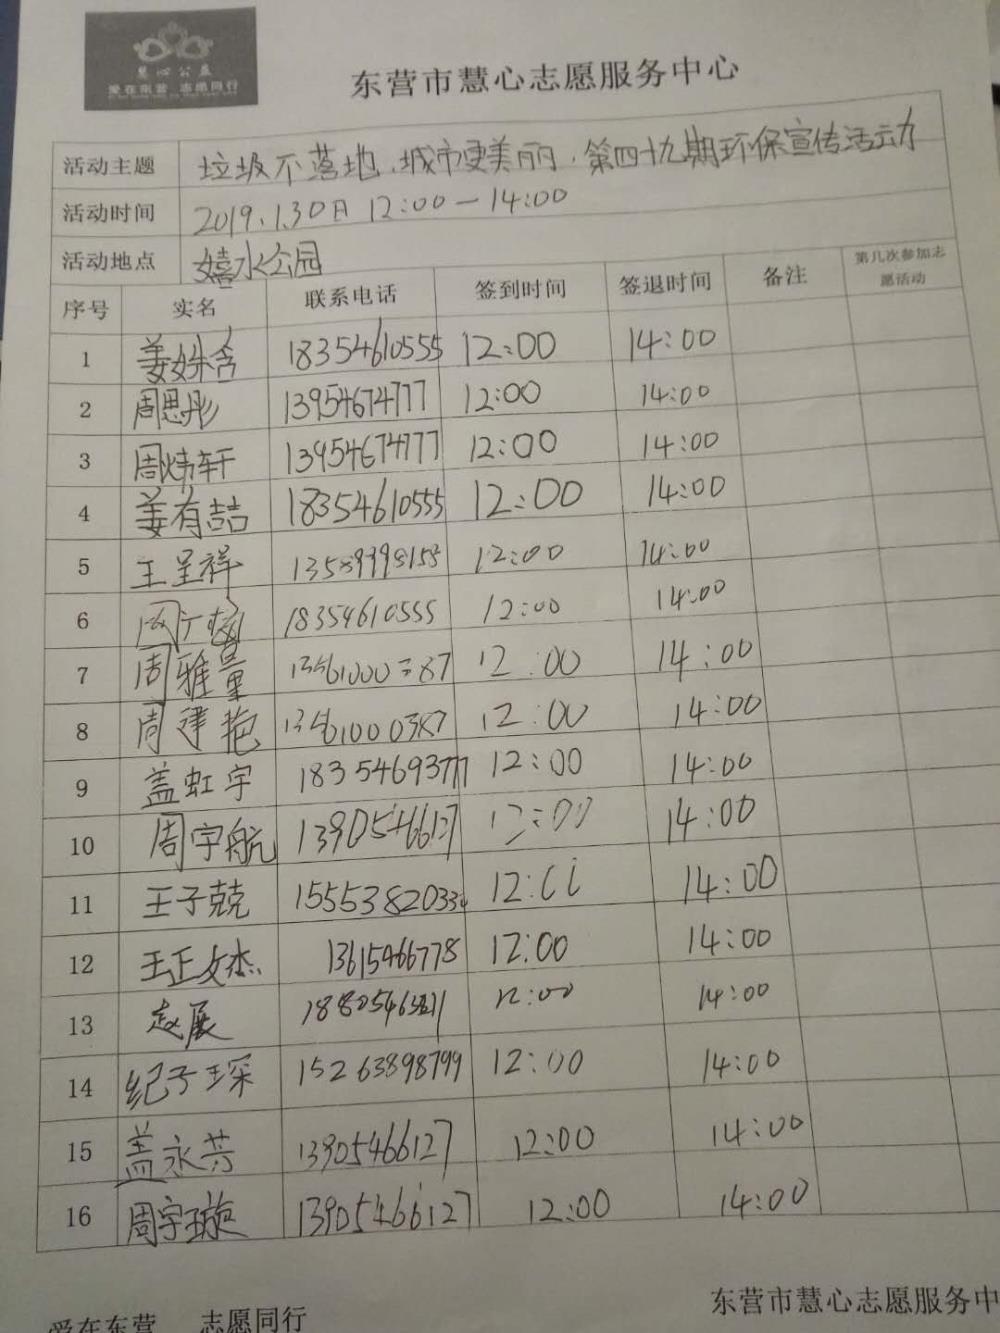 慧心公益
爱在东营 志愿同行
东营市慧心志愿服务中心
活动主题 垃圾不落地,城市更美丽,第四十九期环保宣传活动
活动时间 2019.1.30日 12:00—14:00
活动地点 嬉水公园
序号 实名 联系电话 签到时间 签退时间 备注 第几次参加志愿活动
1 姜姝含 18354610555 12:00 14:00
2 周思彤 13954674777 12:00 14:00
3 周炜轩 13954674777 12:00 14:00
4 姜有喆 18354610555 12:00 14:00
5 王呈祥 12:00 14:00
6 18354610555 12:00 14:00
7 周雅量 12:00 14:00
8 周建艳 12:00 14:00
9 盖虹宇 18354693777 12:00 14:00
10 周宇航 13905466127 12:00 14:00
11 王子兢 14:00
12 王正文杰 13615466778 12:00 14:00
13 赵展 12:00 14:00
14 纪子琛 15263898799 12:00 14:00
15 盖永芳 13905466127 12:00 14:00
16 周宇璇 13905466127 12:00 14:00
爱在东营 志愿同行 东营市慧心志愿服务中